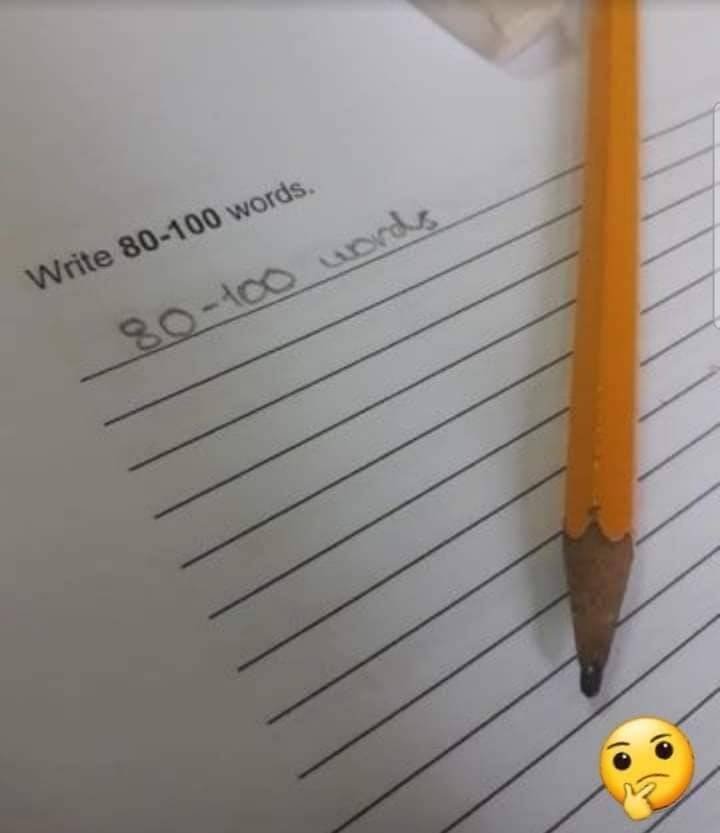 Write 80-100 words.
80-100 words